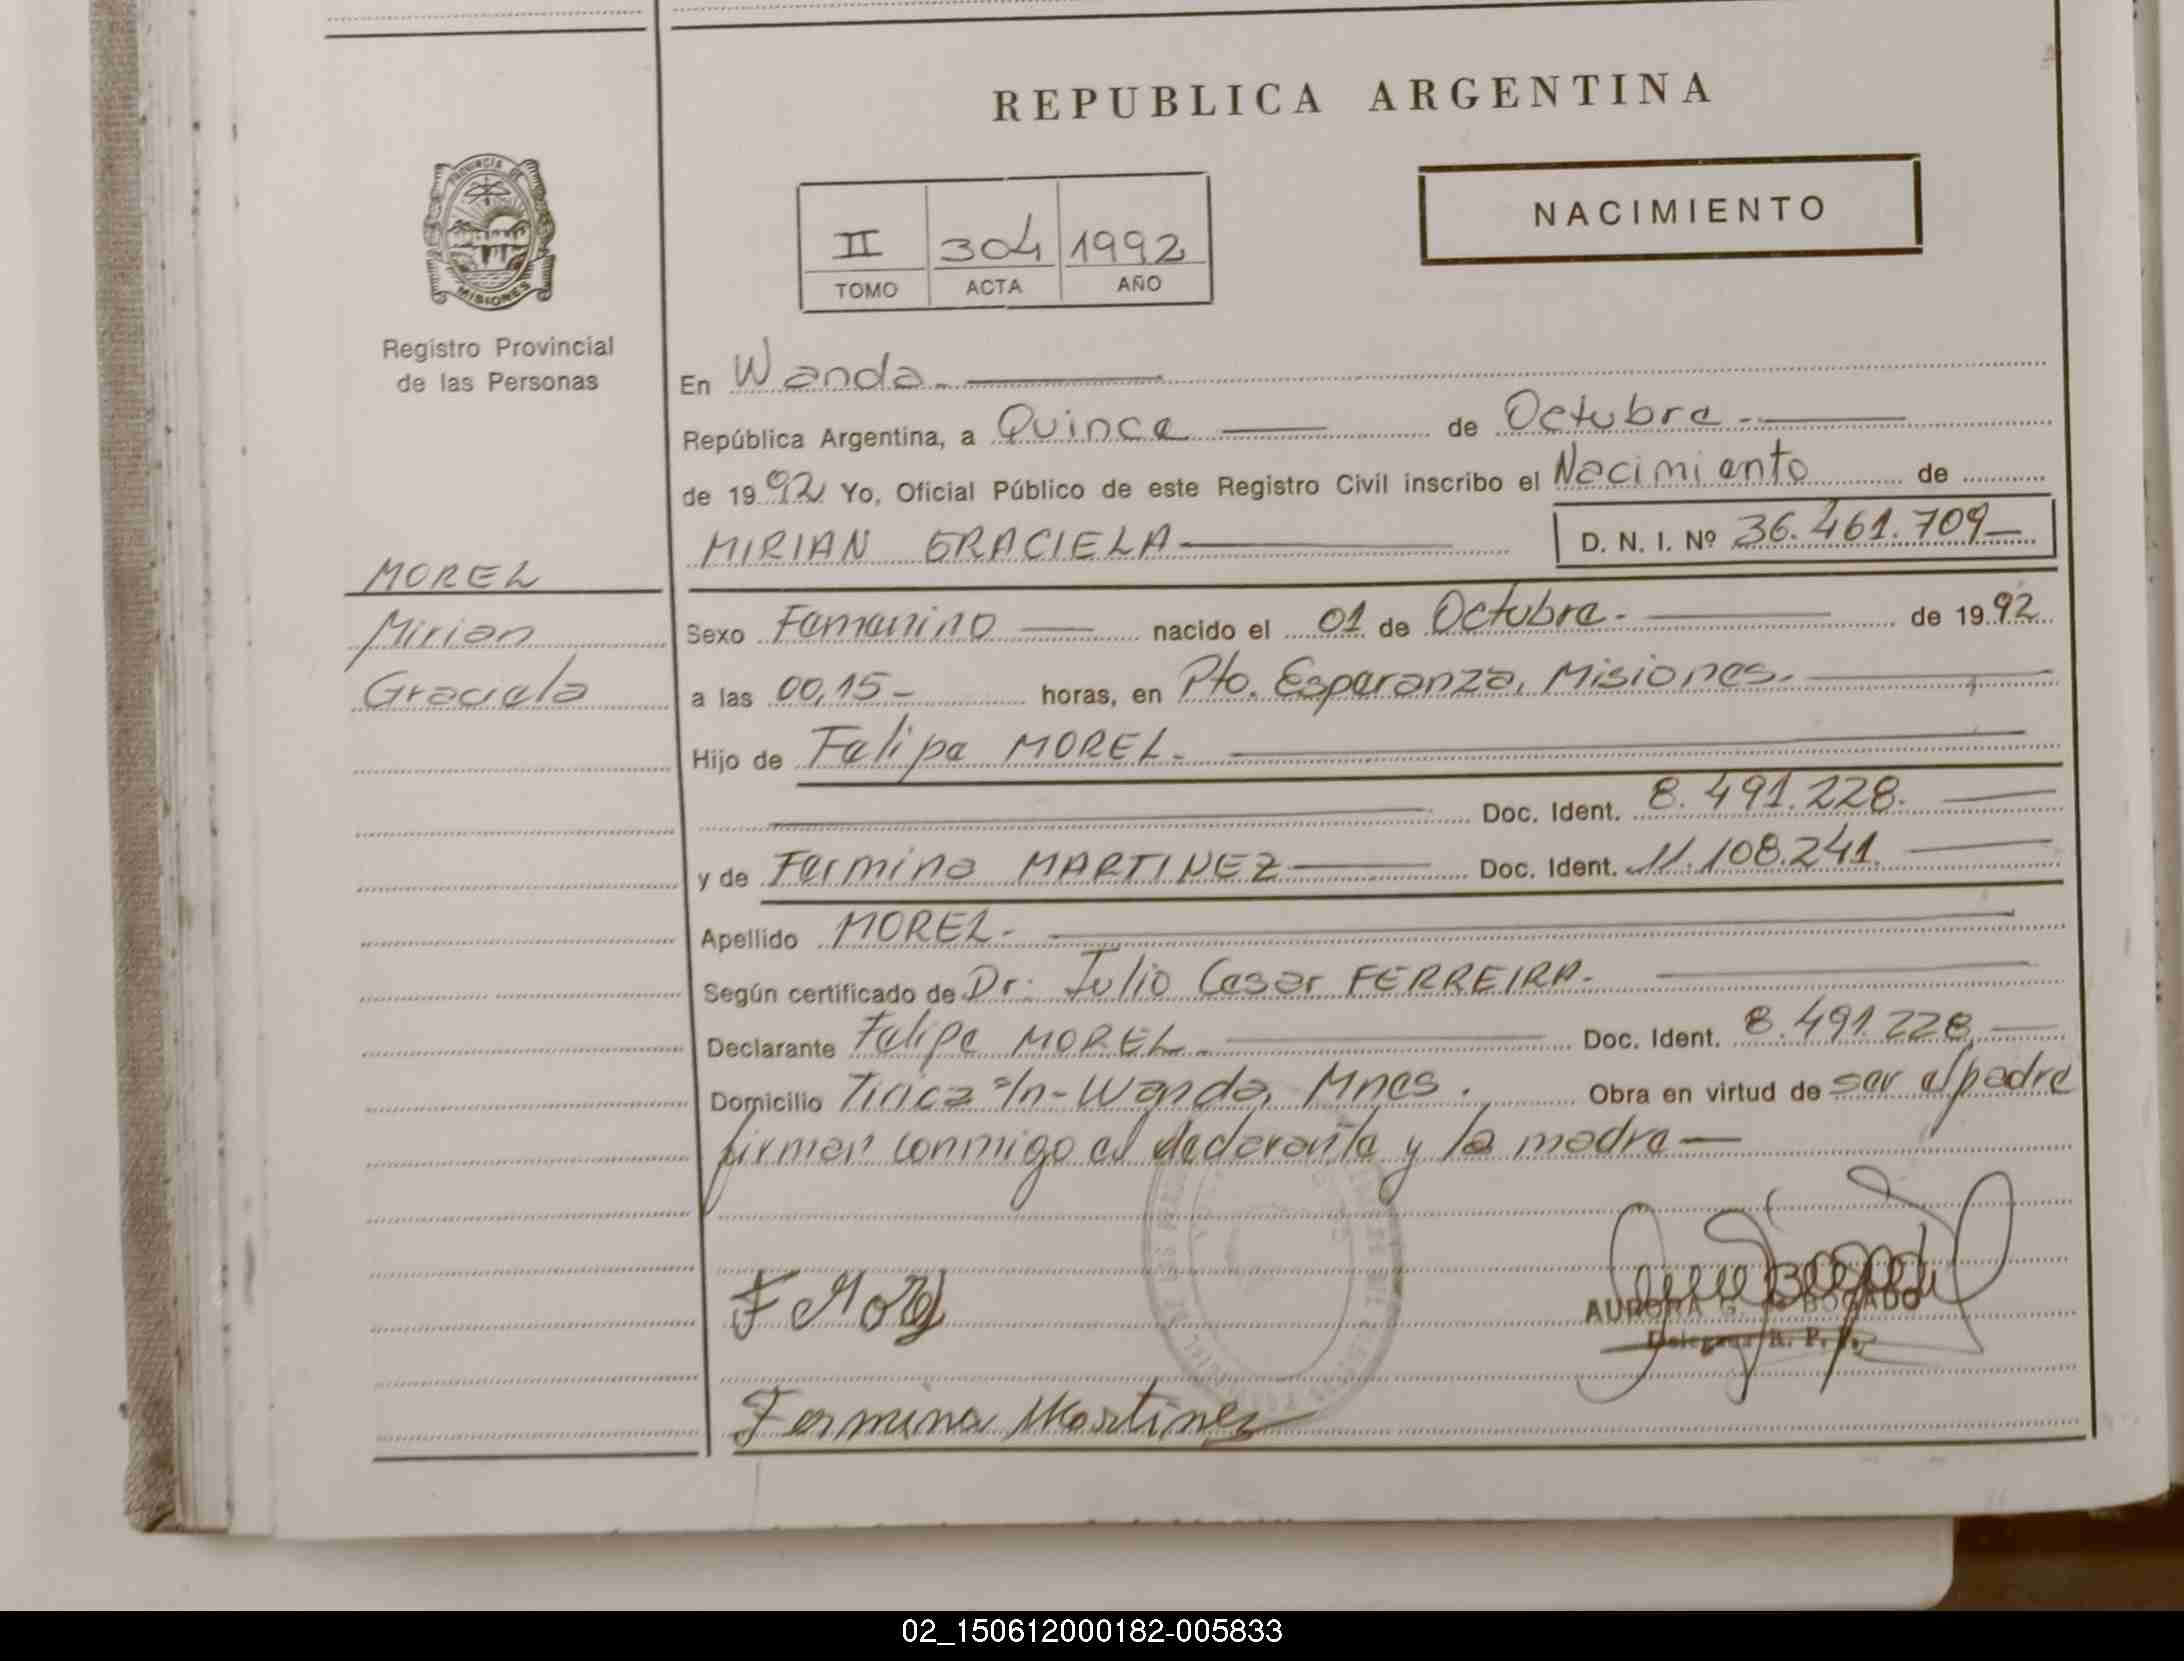 REPUBLICA ARGENTINA
NACIMIENTO
II 304 1992
TOMO ACTA AÑO
PROVINCIA DE
MISIONES
Registro Provincial
de las Personas
MOREL
Mirian
Graciela
En Wanda.
República Argentina, a Quince de Octubre.
de 1992 Yo, Oficial Público de este Registro Civil inscribo el Nacimiento de
MIRIAN GRACIELA D. N. I. Nº 36.461.709
Sexo Femenino nacido el 01 de Octubre. de 1992
a las 00,15 horas, en Pto. Esperanza, Misiones.
Hijo de Felipe MOREL.
Doc. Ident. 8.491.228.
y de Fermina MARTINEZ Doc. Ident. 11.108.241.
Apellido MOREL.
Según certificado de Dr. Julio Cesar FERREIRA.
Declarante Felipe MOREL. Doc. Ident. 8.491.228,
Domicilio Tirica s/n - Wanda, Mnes. Obra en virtud de ser el padre
firman conmigo el declarante y la madre
F Morel
AURORA G. de BOGADO
Delegada R. P. P.
Fermina Martinez
02_150612000182-005833